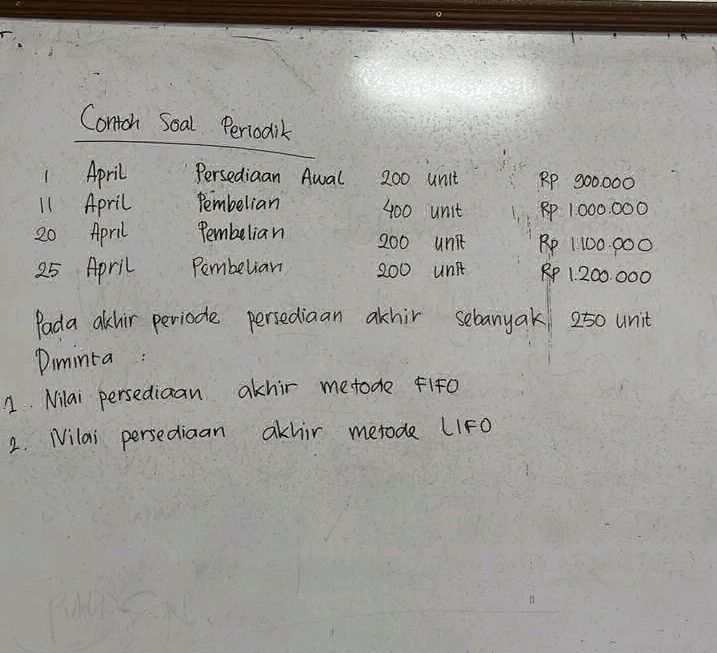 Contoh Soal Periodik
1 April Persediaan Awal 200 unit Rp 900.000
11 April Pembelian 400 unit Rp 1.000.000
20 April Pembelian 200 unit Rp 1.100.000
25 April Pembelian 200 unit Rp 1.200.000
Pada akhir periode persediaan akhir sebanyak 250 unit
Diminta :
1. Nilai persediaan akhir metode FIFO
2. Nilai persediaan akhir metode LIFO